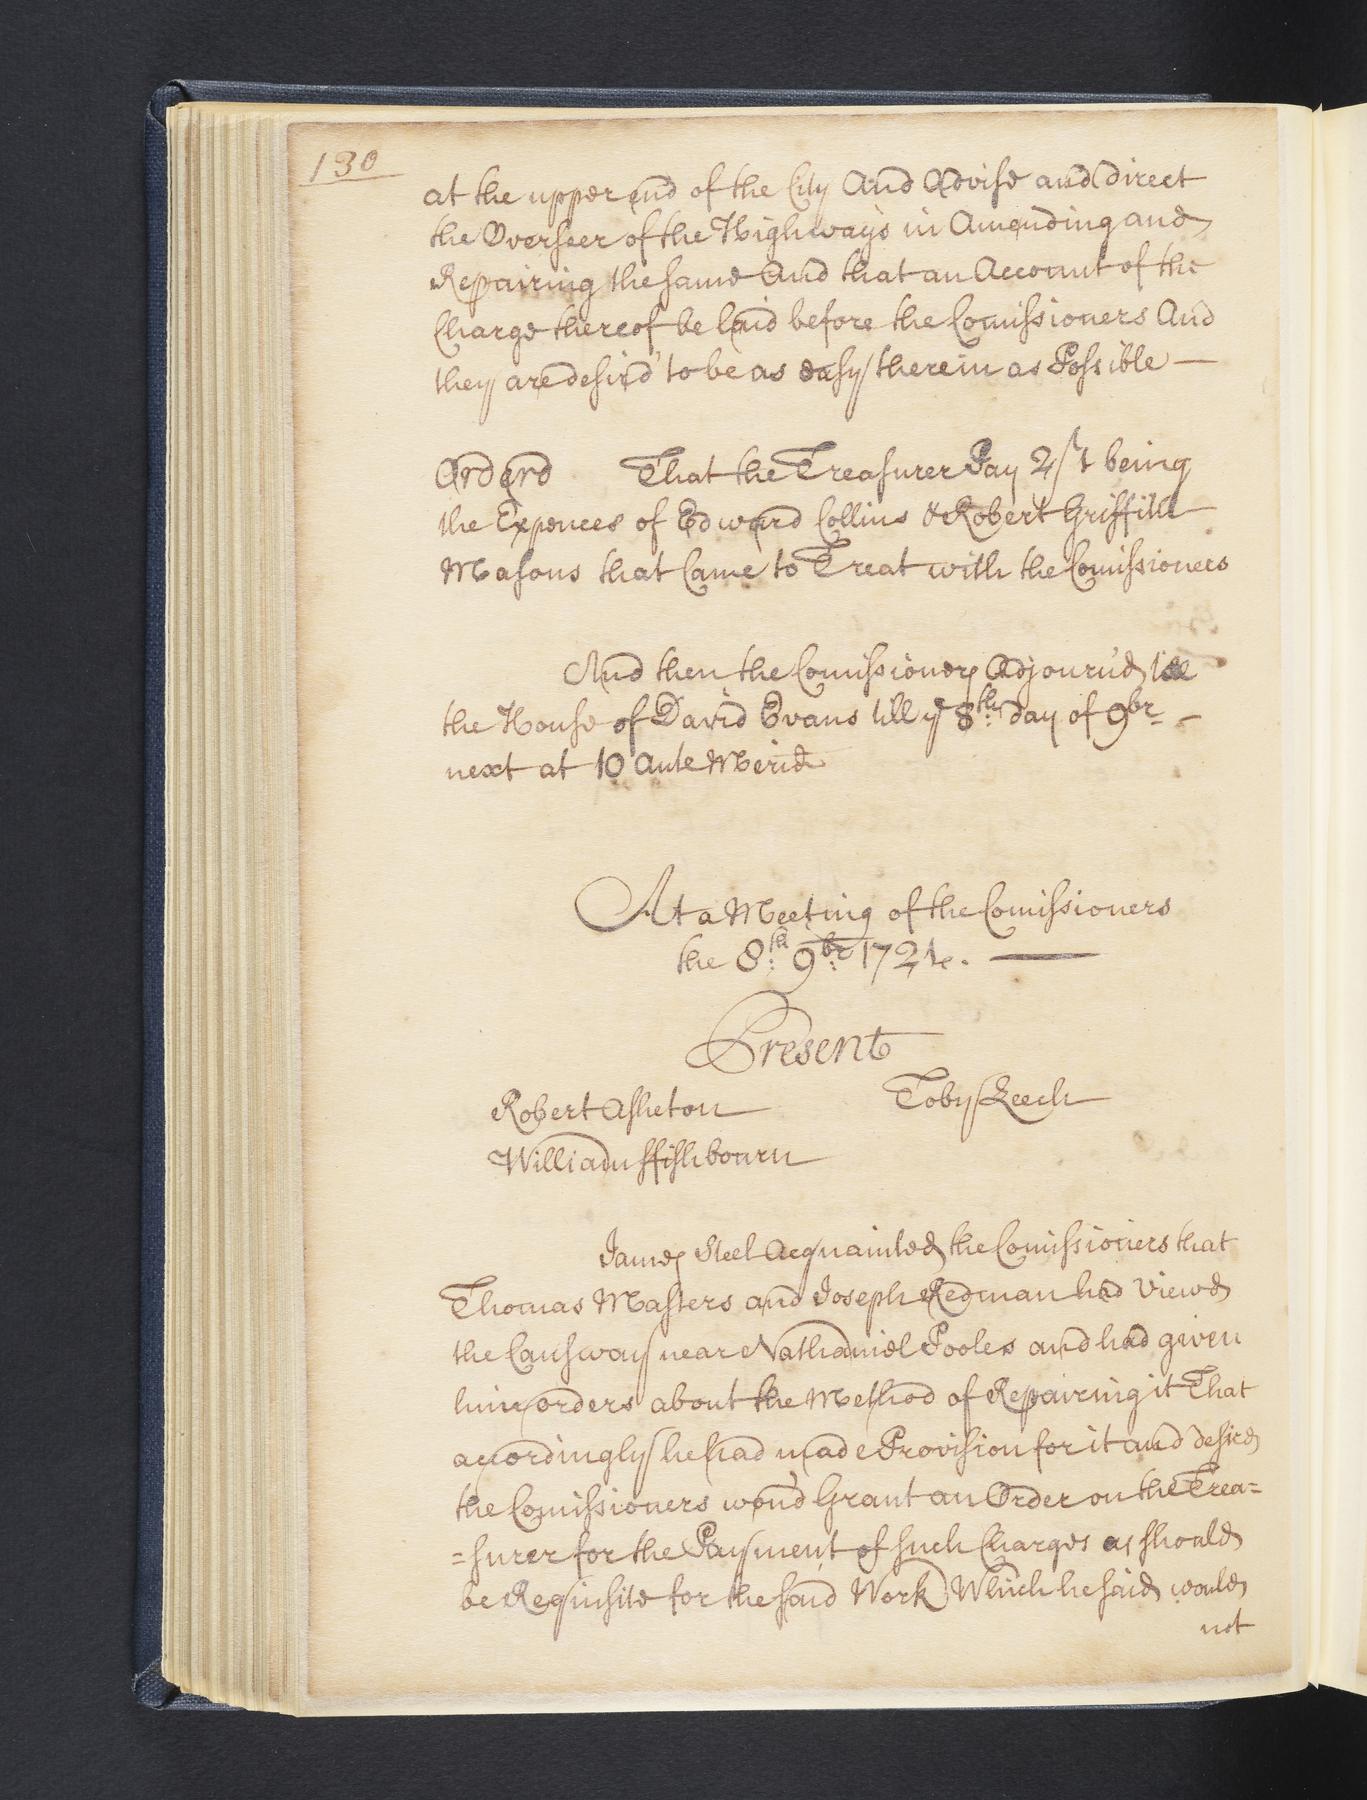 130
at the upper end of the City And Advise and direct
the Overseer of the Highways in Amending and
Repairing the same And that an Account of the
Charge thereof be laid before the Comissioners And
they are desir'd to be as easy therein as Possible —
Orderd That the Treasurer Pay 2/4 being
the Expences of Edward Collins & Robert Griffith
Masons that Came to Treat with the Comissioners
And then the Comissioners Adjourn'd to
the House of David Evans till ye 8th day of 9br -
next at 10 Ante Merid
At a Meeting of the Comissioners
the 8th 9br 1724. —
Present
Robert Asheton Toby Leech
William ffishbourn
James Steel Acquainted the Comissioners that
Thomas Masters and Joseph Redman had Viewd
the Causway near Nathaniel Pooles and had given
him orders about the Method of Repairing it That
acordingly he had made Provision for it and desird
the Comissioners wou'd Grant an Order on the Trea=
=surer for the Payment of such Charges as should
be Requisite for the said Work Which he said would
not